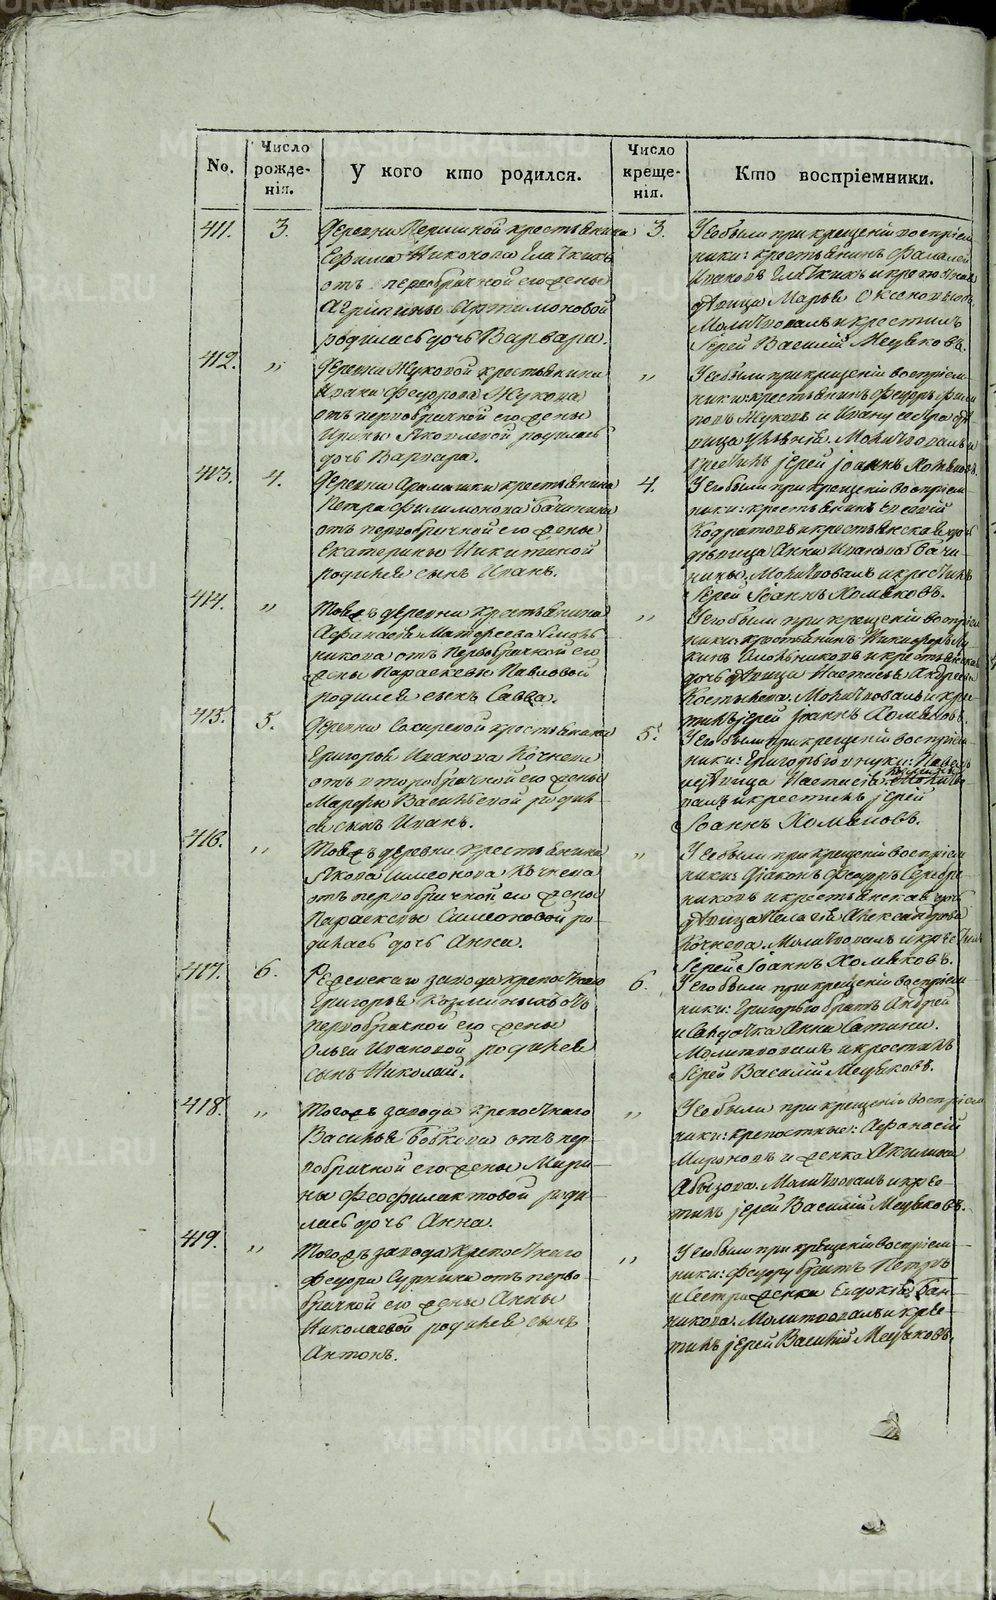 No.
Число рожденiя.
У кого кто родился.
Число крещенiя.
Кто воспрiемники.
411.
3.
Деревни крестьянина
Ефима Никонова
отъ первобрачной его жены
Агрипины Артимоновой
родилась дочь Варвара.
3.
У его были при крещенiи воспрiем
ники: крестьянинъ
девица Марья
Молитвовалъ и крестилъ
Iерей Василiй Мешковъ.
412.
„
Деревни Жуковой крестьянина
Ивана Федорова Жукова
отъ первобрачной его жены
Ирины Яковлевой родилась
дочь Варвара.
„
У его были при крещенiи воспрiем
ники: крестьянинъ Федоръ Фили
повъ Жуковъ и Ивану сестра де
вица Молитвовалъ и
крестилъ iерей Iоаннъ Хомяковъ.
413.
4.
Деревни Арамашки крестьянина
Петра Филимонова Бачинина
отъ первобрачной его жены
Екатерины Никитиной
родился сынъ Иванъ.
4.
У его были при крещенiи воспрiем
ники: крестьянинъ
Кодратовъ и крестьянская дочь
девица Анна Иванова Бачи
нины. Молитвовалъ и крестилъ
Iерей Iоаннъ Хомяковъ.
414.
„
Тоежъ деревни крестьянина
Афанасья Матвеева
отъ первобрачной его
жены Параскевы Павловой
родился сынъ Савва.
„
У его были при крещенiи воспрiем
ники: крестьянинъ Никифоръ
и крестьянская
дочь девица Настасья Андреева
Костылева. Молитвовалъ и крес
тилъ iерей Iоаннъ Хомяковъ.
415.
5.
Деревни Сохаревой крестьянина
Григорья Иванова Кочнева
отъ второбрачной его жены
Марфы Васильевой родил
ся сынъ Иванъ.
5.
У его были при крещенiи воспрiем
ники: Григорьего внуки: Павелъ
и девица Настасья Молитво
валъ и крестилъ iерей
Iоаннъ Хомяковъ.
416.
„
Тоежъ деревни крестьянина
Якова Симеонова Кочнева
отъ первобрачной его жены
Параскевы Симеоновой ро
дилась дочь Анна.
„
У ее были при крещенiи воспрiем
ники: Дiаконъ Федоръ Серебря
никовъ и крестьянская дочь
девица Пелагея Александрова
Кочнева. Молитвовалъ и крестилъ
Iерей Iоаннъ Хомяковъ.
417.
6.
Режевскаго завода крепостнаго
Григорья Козминыхъ отъ
первобрачной его жены
Ольги Ивановой родился
сынъ Николай.
6.
У его были при крещенiи воспрiем
ники: Григорьего братъ Андрей
и Анна
Молитвовалъ и крестилъ
Iерей Василiй Мешковъ.
418.
„
Тогожъ завода крепостнаго
Василья Бобкова отъ пер
вобрачной его жены Мари
ны Феофилактовой роди
лась дочь Анна.
„
У ее были при крещенiи воспрiем
ники: крепостные: Афанасiй
Мироновъ и женка Акилина
Абызова. Молитвовалъ и крес
тилъ iерей Василiй Мешковъ.
419.
„
Тогожъ завода крепостнаго
Федора Сурнина отъ перво
брачной его жены Анны
Николаевой родился сынъ
Антонъ.
„
У его были при крещенiи воспрiем
ники: Федору братъ Петръ
и сестра женка Евдокiя Бан
никова. Молитвовалъ и крес
тилъ iерей Василiй Мешковъ.
METRIKI.GASO-URAL.RU